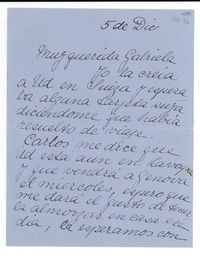 5 de Dic
Muy querida Gabriela
Yo la creía
a Ud en Suiza y espera
ba alguna tarjeta suya
diciéndome que había
resuelto de viaje.
Carlos me dice que
Ud esta aun en
y que vendrá a Genova
el miercoles, espero que
me dará el gusto de tener
la almorzar en casa ese
día, la esperamos con